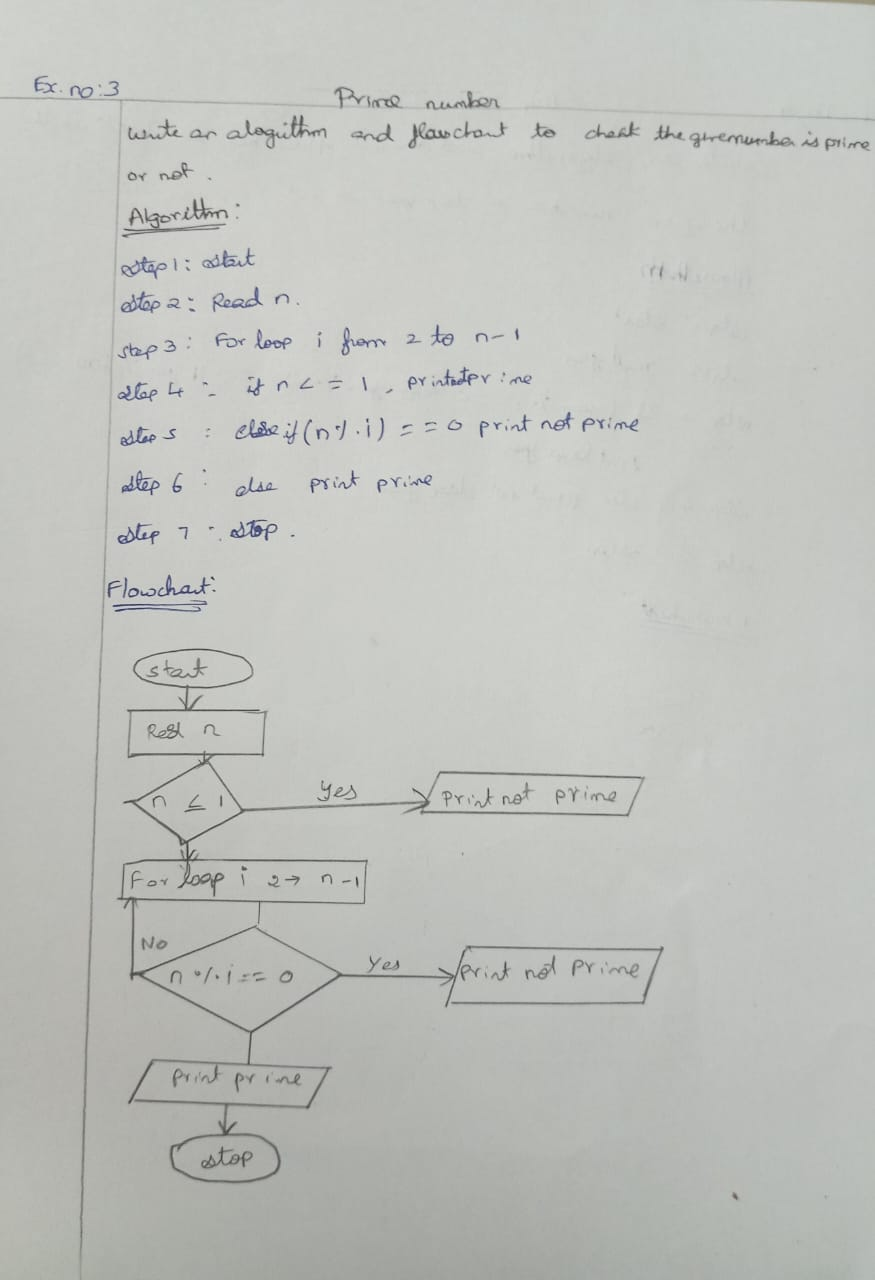 Ex. no: 3
Prime number
write an alogrithm and flowchart to check the give number is prime
or not.
Algorithm:
Step 1: Start
Step 2: Read n.
Step 3: For loop i from 2 to n-1
Step 4: if n <= 1, print not prime
Step 5: else if (n%.i) == 0 print not prime
Step 6: else print prime
Step 7: Stop.
Flowchart:
start
Read n
n ≤ 1
Yes
Print not prime
For loop i 2→ n-1
No
n%.i == 0
Yes
print not prime
print prime
stop